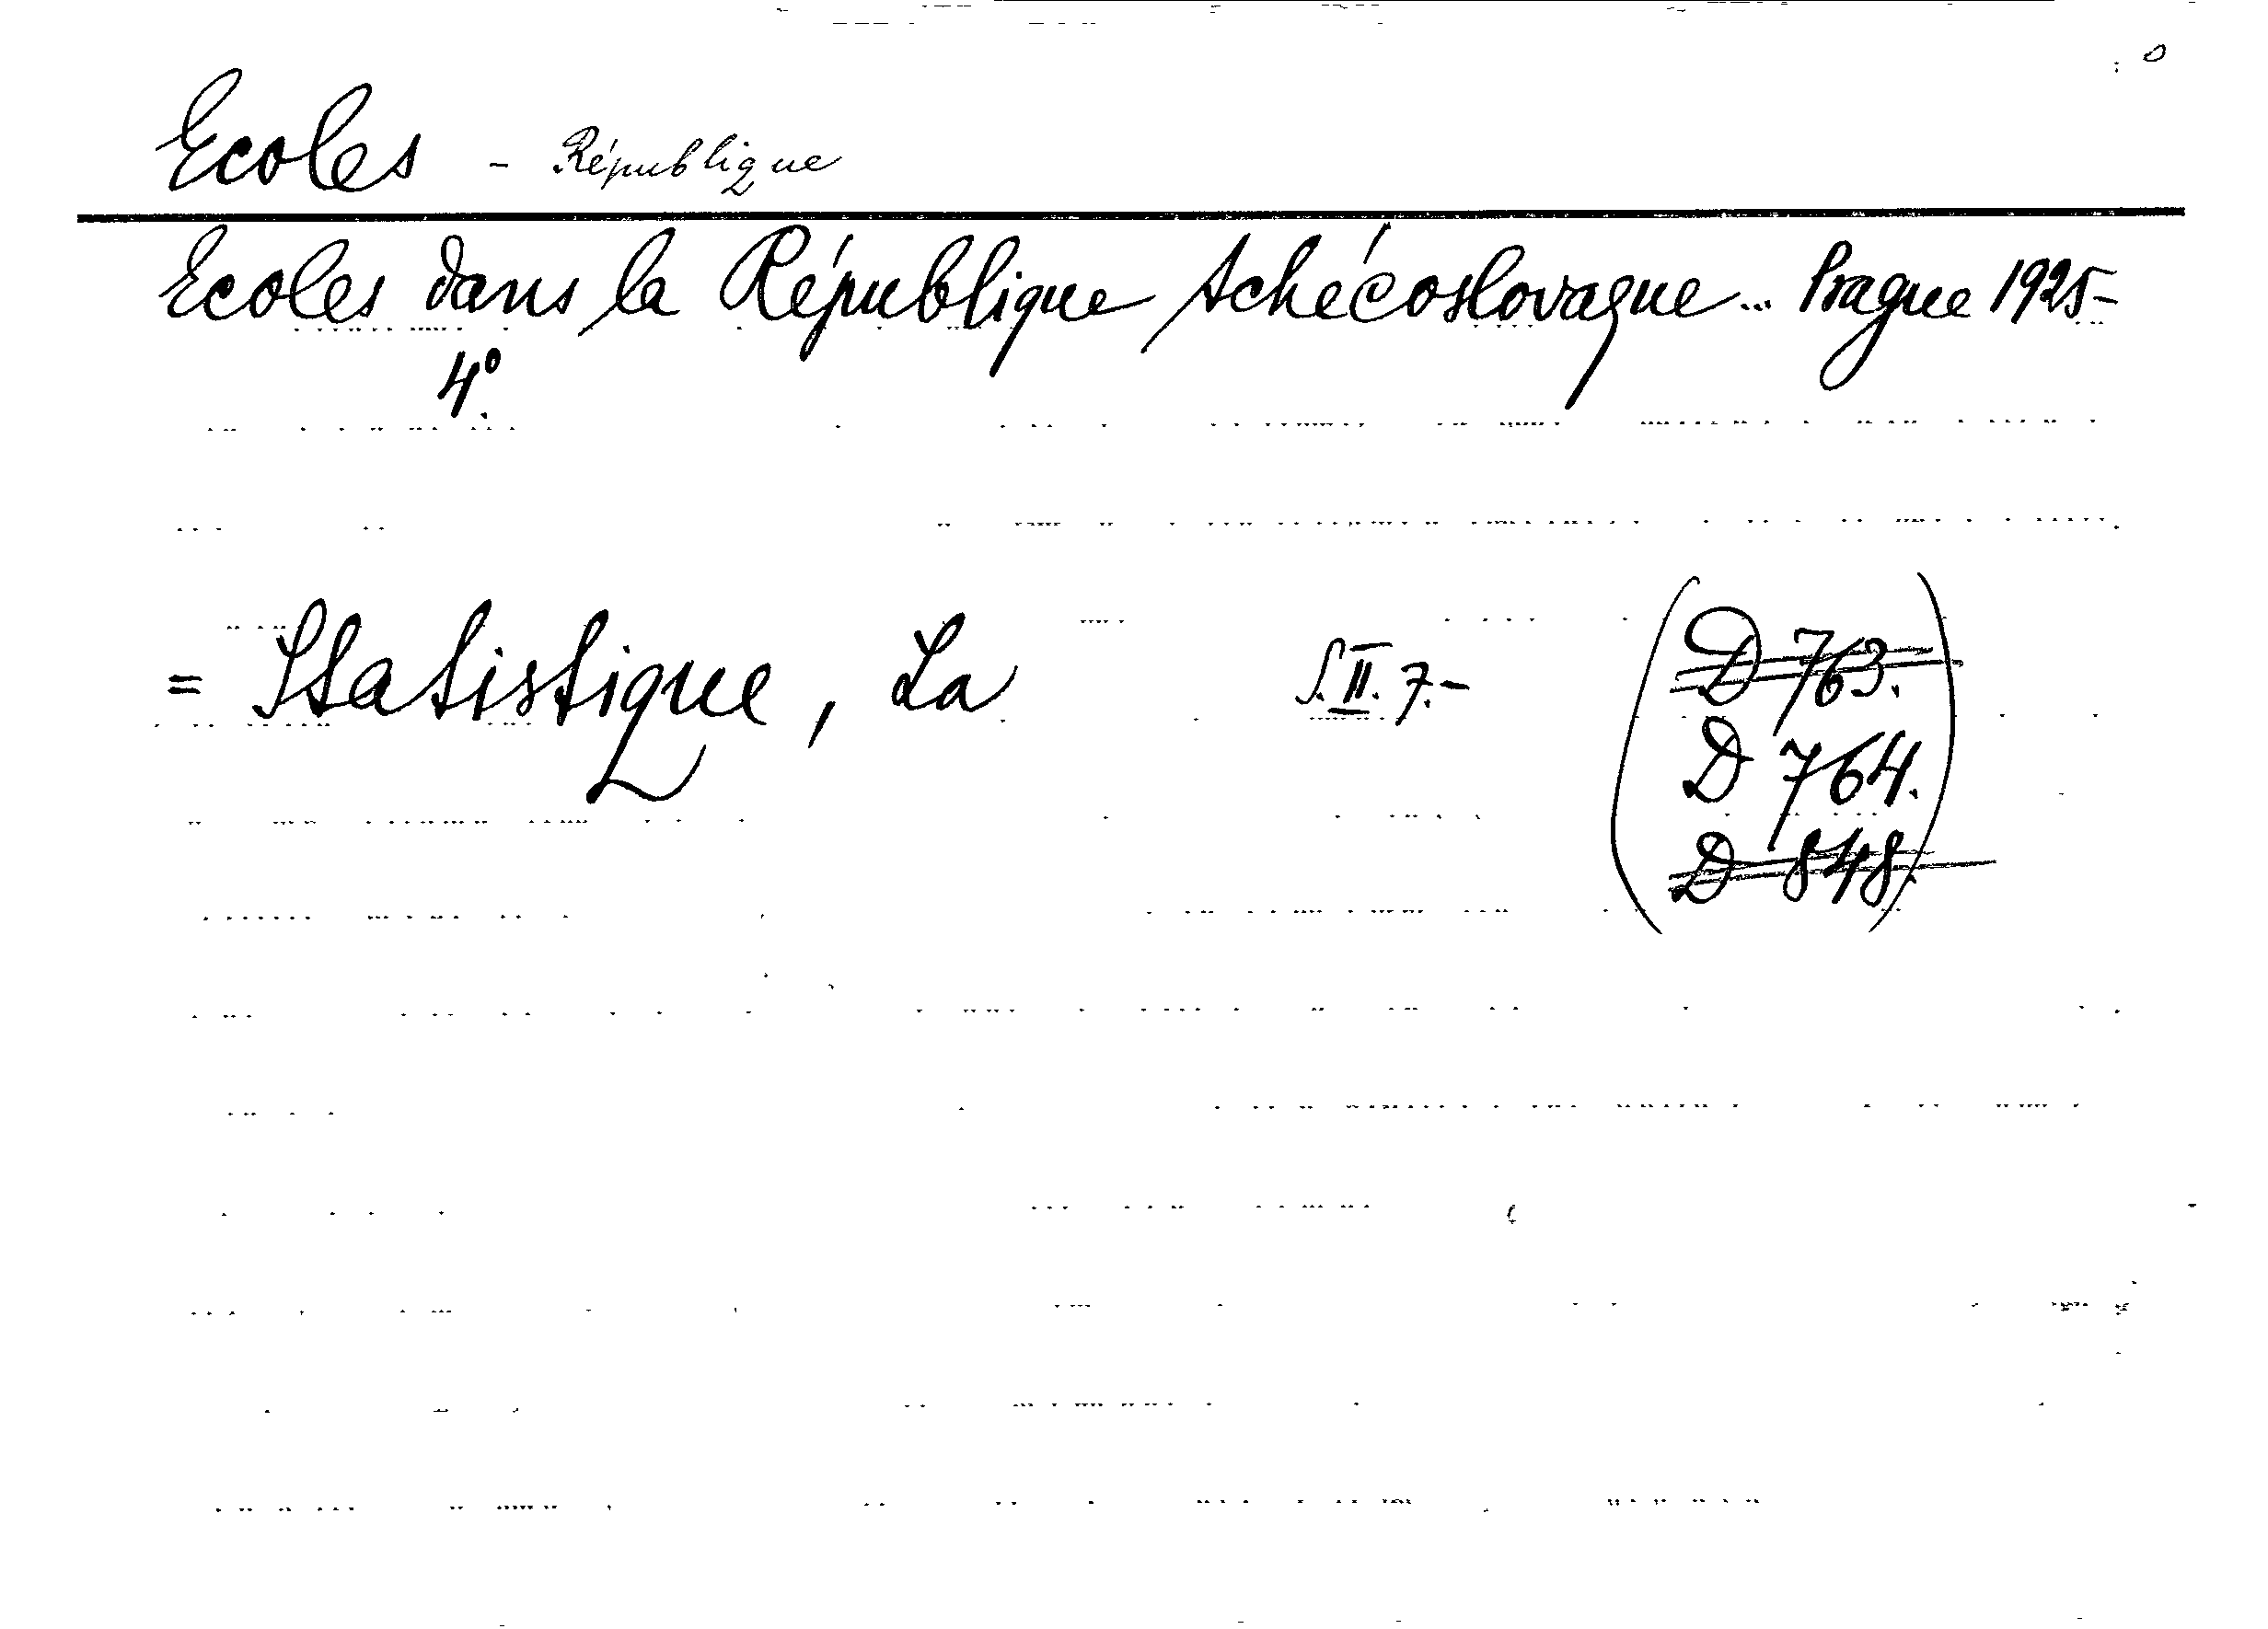 Ecoles - République
Ecoles dans la République tchécoslovaque... Prague 1925-
4°.
= Statistique, La S.II.7.- (D 763.
D 764.
D 848.)